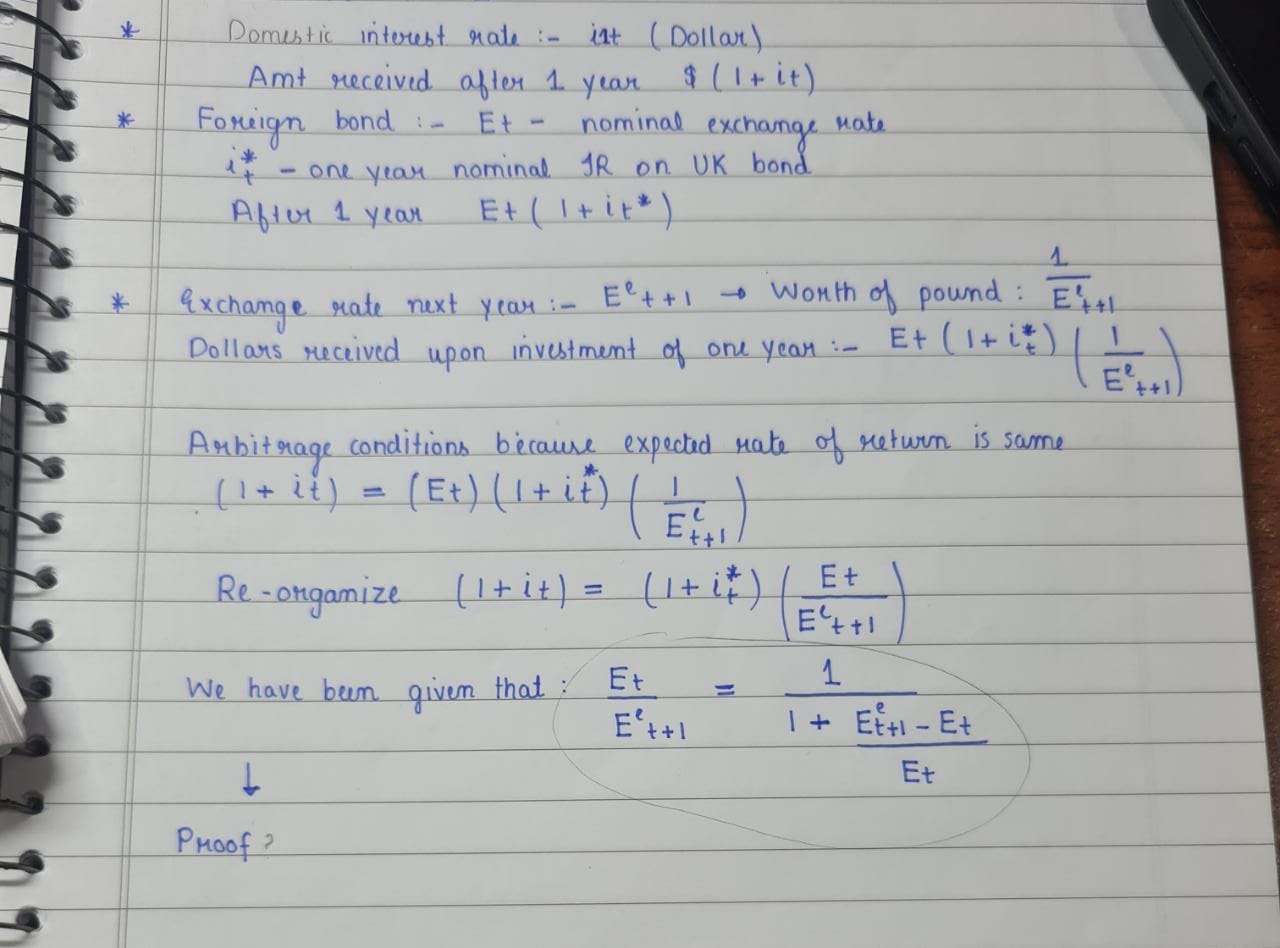 * Domestic interest rate :- i1t (Dollar)
Amt received after 1 year $ (1 + it)
* Foreign bond :- Et - nominal exchange rate
i*t - one year nominal IR on UK bond
After 1 year Et (1 + it*)
* Exchange rate next year :- E^e t+1 → Worth of pound : 1/E^e t+1
Dollars received upon investment of one year :- Et (1 + i*t) (1/E^e t+1)
Arbitrage conditions because expected rate of return is same
(1 + it) = (Et) (1 + i*t) (1/E^e t+1)
Re-organize (1 + it) = (1 + i*t) (Et/E^e t+1)
We have been given that : Et/E^e t+1 = 1/(1 + (E^e t+1 - Et)/Et)
↓
Proof ?